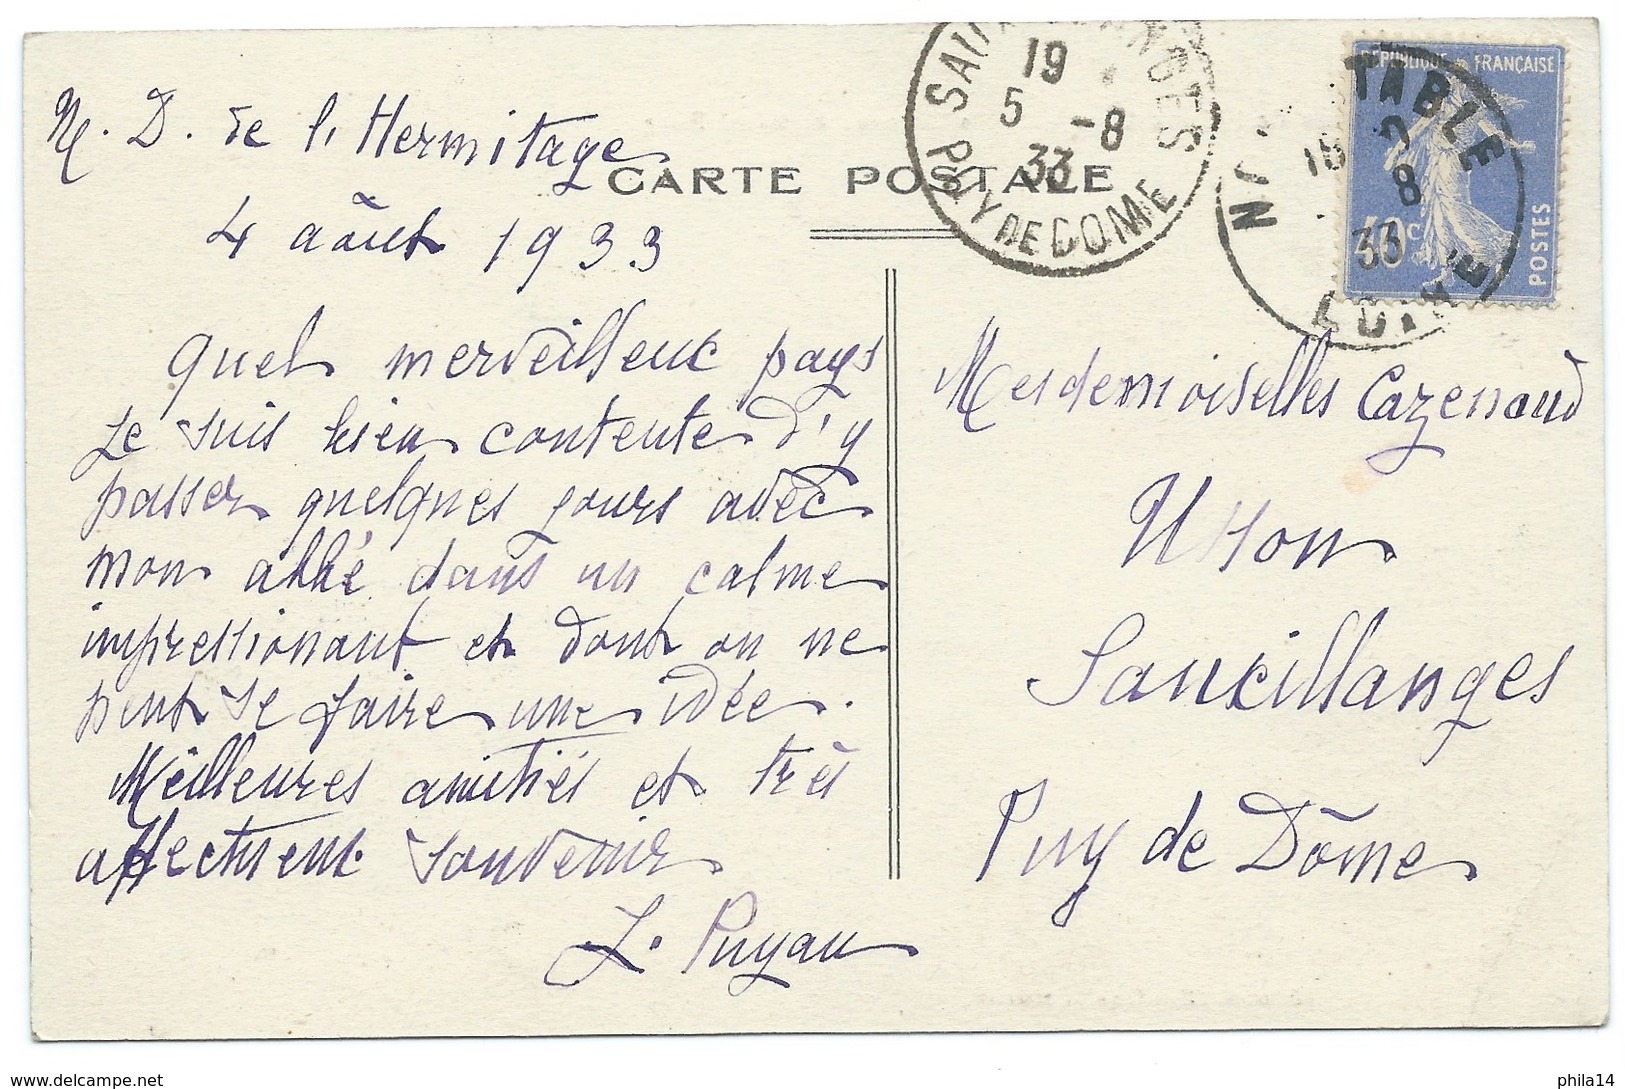 N. D. de l'Hermitage
CARTE POSTALE
4 août 1933
Quel merveilleux pays
Je suis bien contente d'y
passer quelques jours avec
mon abbé dans un calme
impressionant et dont on ne
peut se faire une idée.
Meilleures amitiés et très
affectueux souvenir
Puyau
Mesdemoiselles Cazenaud
Usson
Sauxillanges
Puy de Dôme
19
5 -8
33
PUY DE DOME
TABLE
8
33
LOIRE
REPUBLIQUE FRANÇAISE
40c
POSTES
phila14
www.delcampe.net